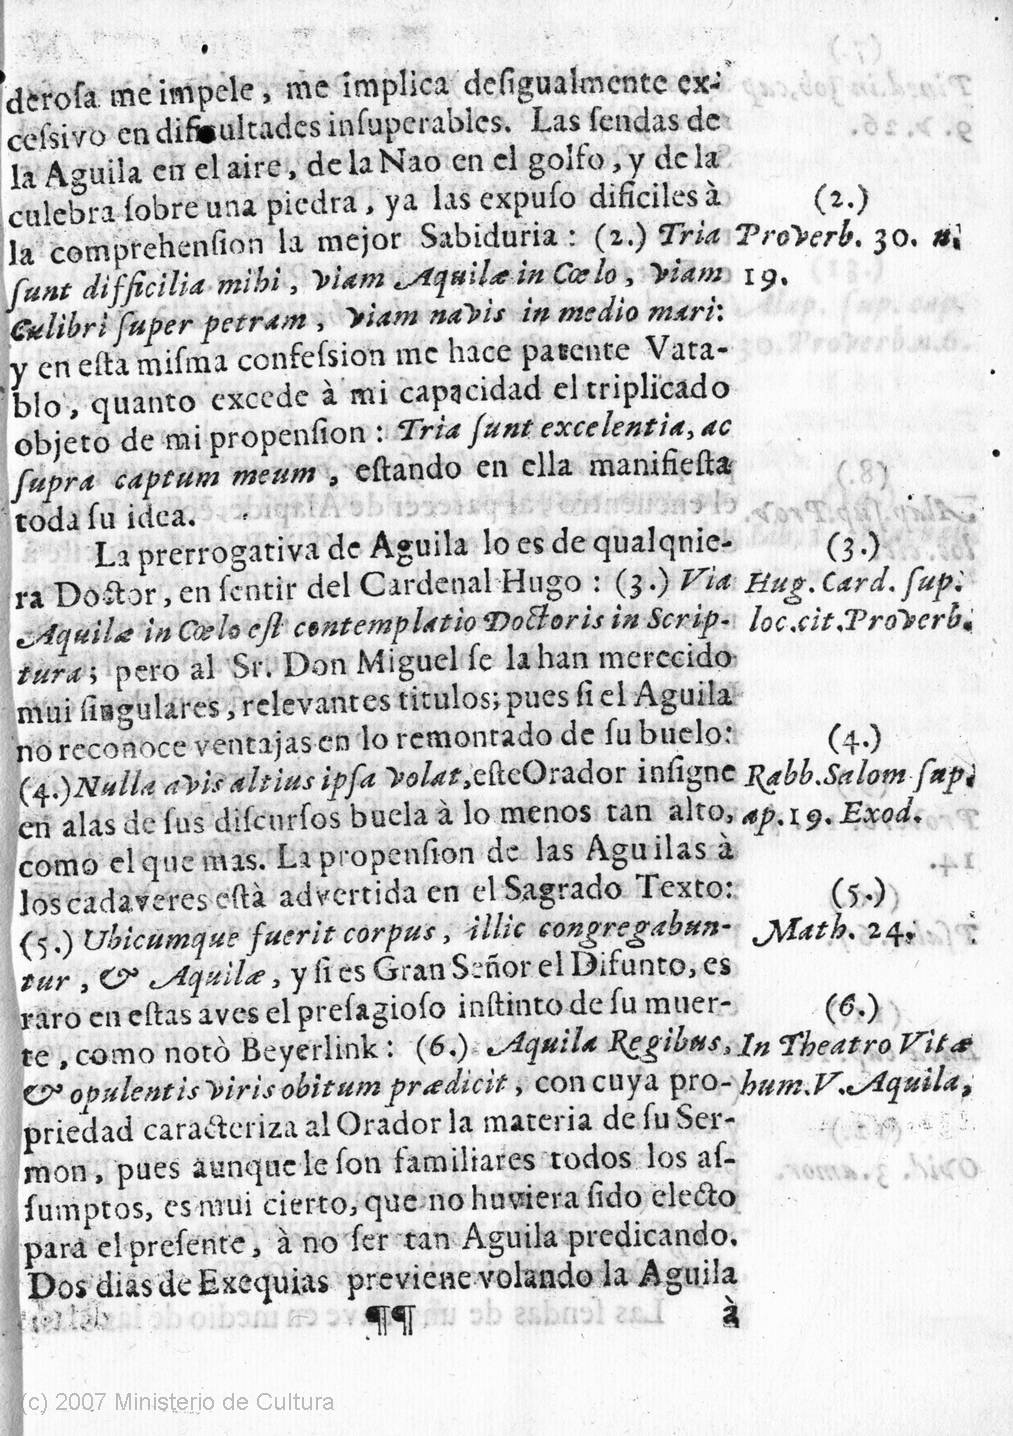 derosa me impele, me implica desigualmente ex-
cessivo en dificultades insuperables. Las sendas de
la Aguila en el aire, de la Nao en el golfo, y de la
culebra sobre una piedra, ya las expuso dificiles à
la comprehension la mejor Sabiduria: (2.) Tria
sunt difficilia mihi, viam Aquilæ in Cœlo, viam
Culibri super petram, viam navis in medio mari:
y en esta misma confession me hace patente Vata-
blo, quanto excede à mi capacidad el triplicado
objeto de mi propension: Tria sunt excelentia, ac
supra captum meum, estando en ella manifiesta
toda su idea.
La prerrogativa de Aguila lo es de qualqnie-
ra Doctor, en sentir del Cardenal Hugo: (3.) Via
Aquilæ in Cœlo est contemplatio Doctoris in Scrip-
tura; pero al Sr. Don Miguel se la han merecido
mui singulares, relevantes titulos; pues si el Aguila
no reconoce ventajas en lo remontado de su buelo:
(4.) Nulla avis altius ipsa volat, este Orador insigne
en alas de sus discursos buela à lo menos tan alto,
como el que mas. La propension de las Aguilas à
los cadaveres està advertida en el Sagrado Texto:
(5.) Ubicumque fuerit corpus, illic congregabun-
tur, & Aquilæ, y si es Gran Señor el Difunto, es
raro en estas aves el presagioso instinto de su muer-
te, como notò Beyerlink: (6.) Aquila Regibus,
& opulentis viris obitum prædicit, con cuya pro-
priedad caracteriza al Orador la materia de su Ser-
mon, pues aunque le son familiares todos los as-
sumptos, es mui cierto, que no huviera sido electo
para el presente, à no ser tan Aguila predicando.
Dos dias de Exequias previene volando la Aguila
¶¶ à
(2.)
Proverb. 30. n.
19.
(3.)
Hug. Card. sup.
loc. cit. Proverb.
(4.)
Rabb. Salom sup.
ap. 19. Exod.
(5.)
Math. 24.
(6.)
In Theatro Vitæ
hum. V. Aquila.
(c) 2007 Ministerio de Cultura